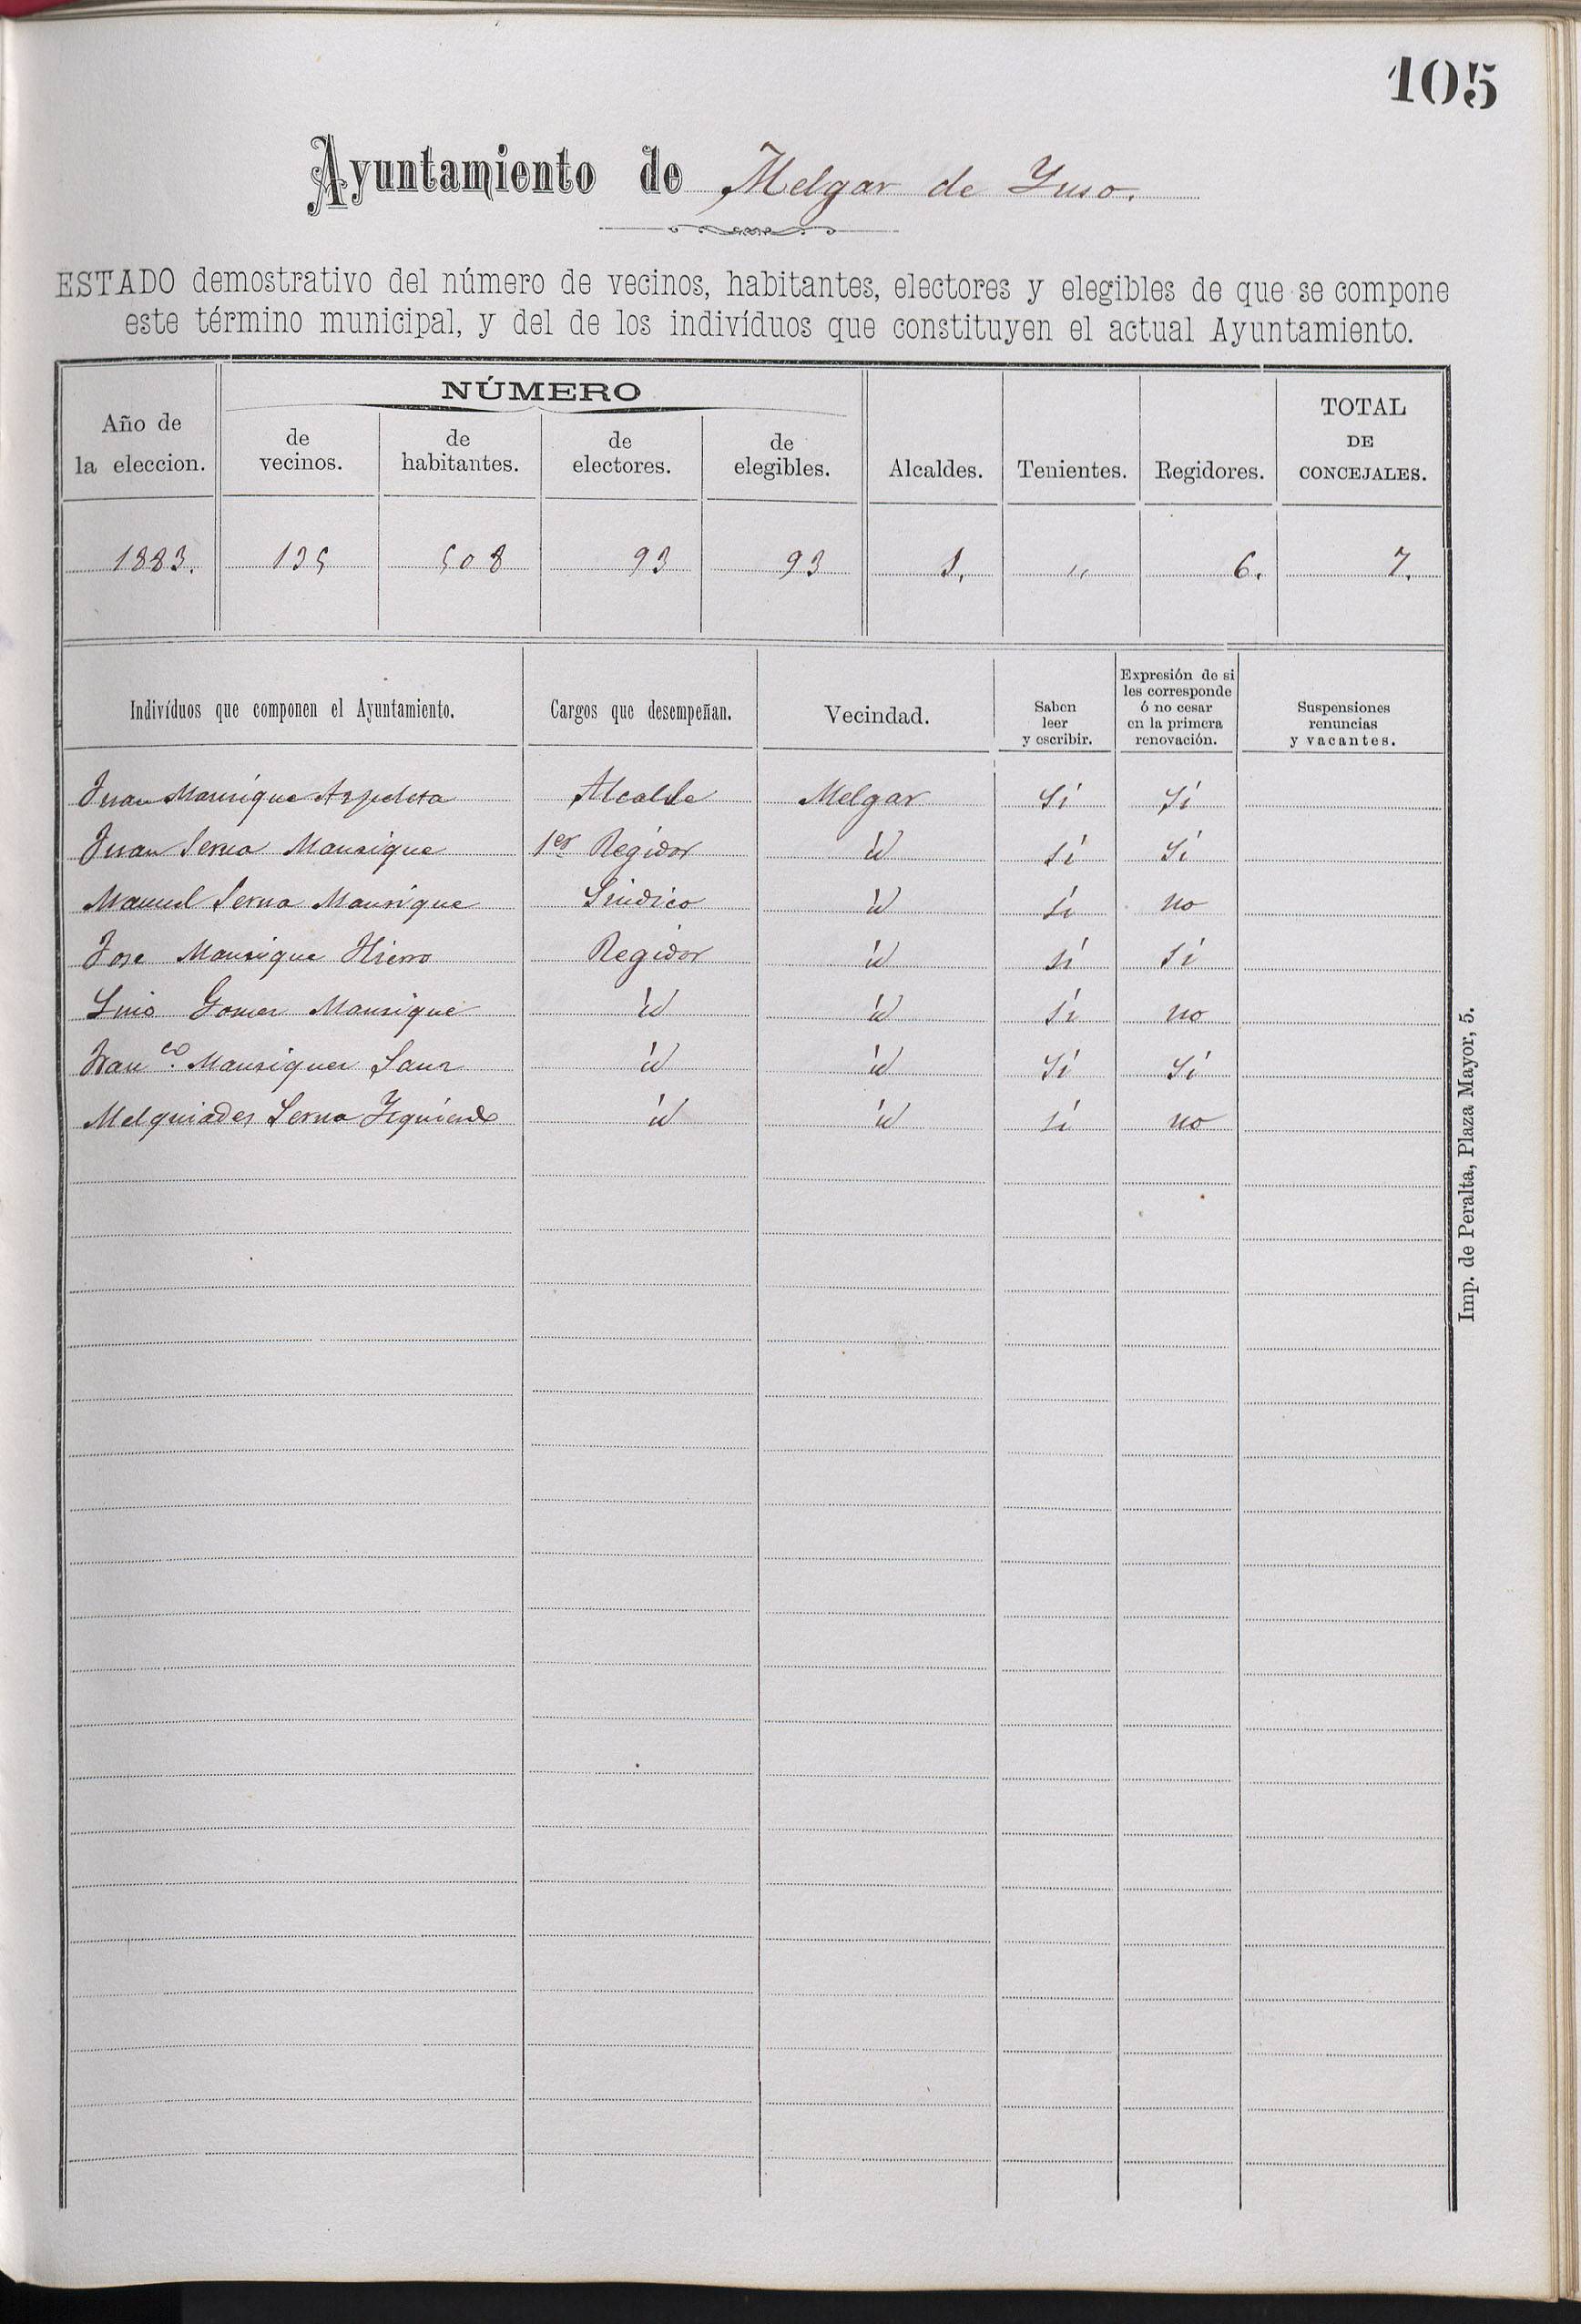 105
Ayuntamiento de Melgar de Yuso.
ESTADO demostrativo del número de vecinos, habitantes, electores y elegibles de que se compone
este término municipal, y del de los indivíduos que constituyen el actual Ayuntamiento.
Año de la eleccion. NÚMERO de vecinos. de habitantes. de electores. de elegibles. Alcaldes. Tenientes. Regidores. TOTAL DE CONCEJALES.
1883. 135 508 93 93 1. " 6. 7.
Indivíduos que componen el Ayuntamiento. Cargos que desempeñan. Vecindad. Saben leer y escribir. Expresión de si les corresponde ó no cesar en la primera renovación. Suspensiones renuncias y vacantes.
Juan Manrique Azpeleta Alcalde Melgar Si Si
Juan Serna Manrique 1er Regidor id si Si
Manuel Serna Manrique Sindico id si no
Jose Manrique Hierro Regidor id si Si
Luis Gomez Manrique id id si no
Franco. Manriquez Sanz id id Si Si
Melquiades Serna Izquierdo id id si no
Imp. de Peralta, Plaza Mayor, 5.